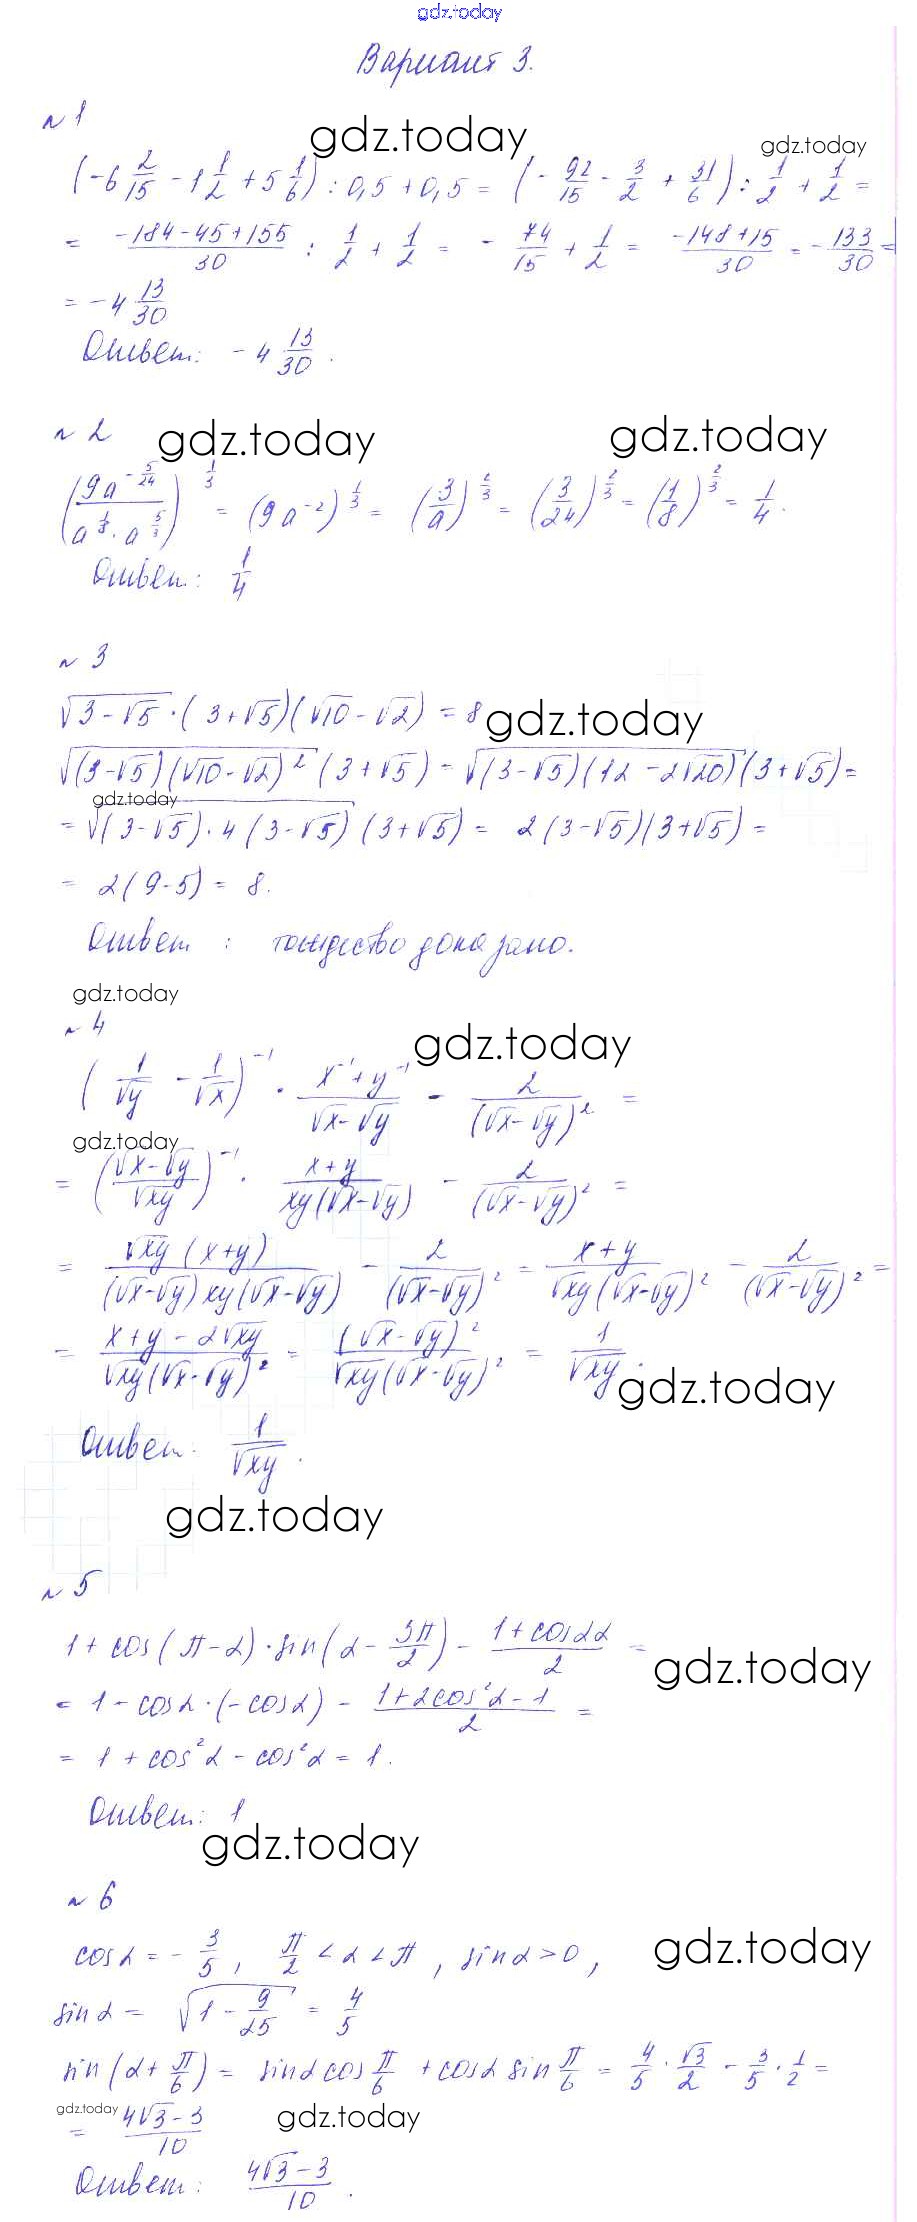 gdz.today
Вариант 3.
№ 1
gdz.today gdz.today
(-6 2/15 - 1 1/2 + 5 1/6) : 0,5 + 0,5 = (- 92/15 - 3/2 + 31/6) : 1/2 + 1/2 =
= (-184-45+155)/30 : 1/2 + 1/2 = - 74/15 + 1/2 = (-148+15)/30 = - 133/30 =
= -4 13/30
Ответ: -4 13/30.
№ 2
gdz.today gdz.today
((9a^(-5/24))/(a^(1/8) · a^(5/3)))^(1/3) = (9a^(-2))^(1/3) = (3/a)^(2/3) = (3/24)^(2/3) = (1/8)^(2/3) = 1/4.
Ответ: 1/4
№ 3
√(3-√5) · (3+√5)(√10-√2) = 8 gdz.today
√((3-√5)(√10-√2)²) (3+√5) = √((3-√5)(12-2√20)) (3+√5) =
gdz.today
= √((3-√5)·4(3-√5)) (3+√5) = 2(3-√5)(3+√5) =
= 2(9-5) = 8.
Ответ: тождество доказано.
gdz.today
№ 4
gdz.today
(1/√y - 1/√x)^(-1) · (x^(-1)+y^(-1))/(√x-√y) - 2/(√x-√y)² =
gdz.today
= ((√x-√y)/√xy)^(-1) · (x+y)/(xy(√x-√y)) - 2/(√x-√y)² =
= (√xy (x+y))/((√x-√y)xy(√x-√y)) - 2/(√x-√y)² = (x+y)/(√xy(√x-√y)²) - 2/(√x-√y)² =
= (x+y-2√xy)/(√xy(√x-√y)²) = (√x-√y)²/(√xy(√x-√y)²) = 1/√xy.
gdz.today
Ответ: 1/√xy.
gdz.today
№ 5
1+cos(π-α)·sin(α- 3π/2) - (1+cos2α)/2 =
gdz.today
= 1-cosα·(-cosα) - (1+2cos²α-1)/2 =
= 1+cos²α-cos²α = 1.
Ответ: 1
gdz.today
№ 6
cosα = - 3/5, π/2 < α < π, sinα > 0,
gdz.today
sinα = √(1 - 9/25) = 4/5
sin(α+ π/6) = sinα cos π/6 + cosα sin π/6 = 4/5 · √3/2 - 3/5 · 1/2 =
gdz.today gdz.today
= (4√3-3)/10
Ответ: (4√3-3)/10.